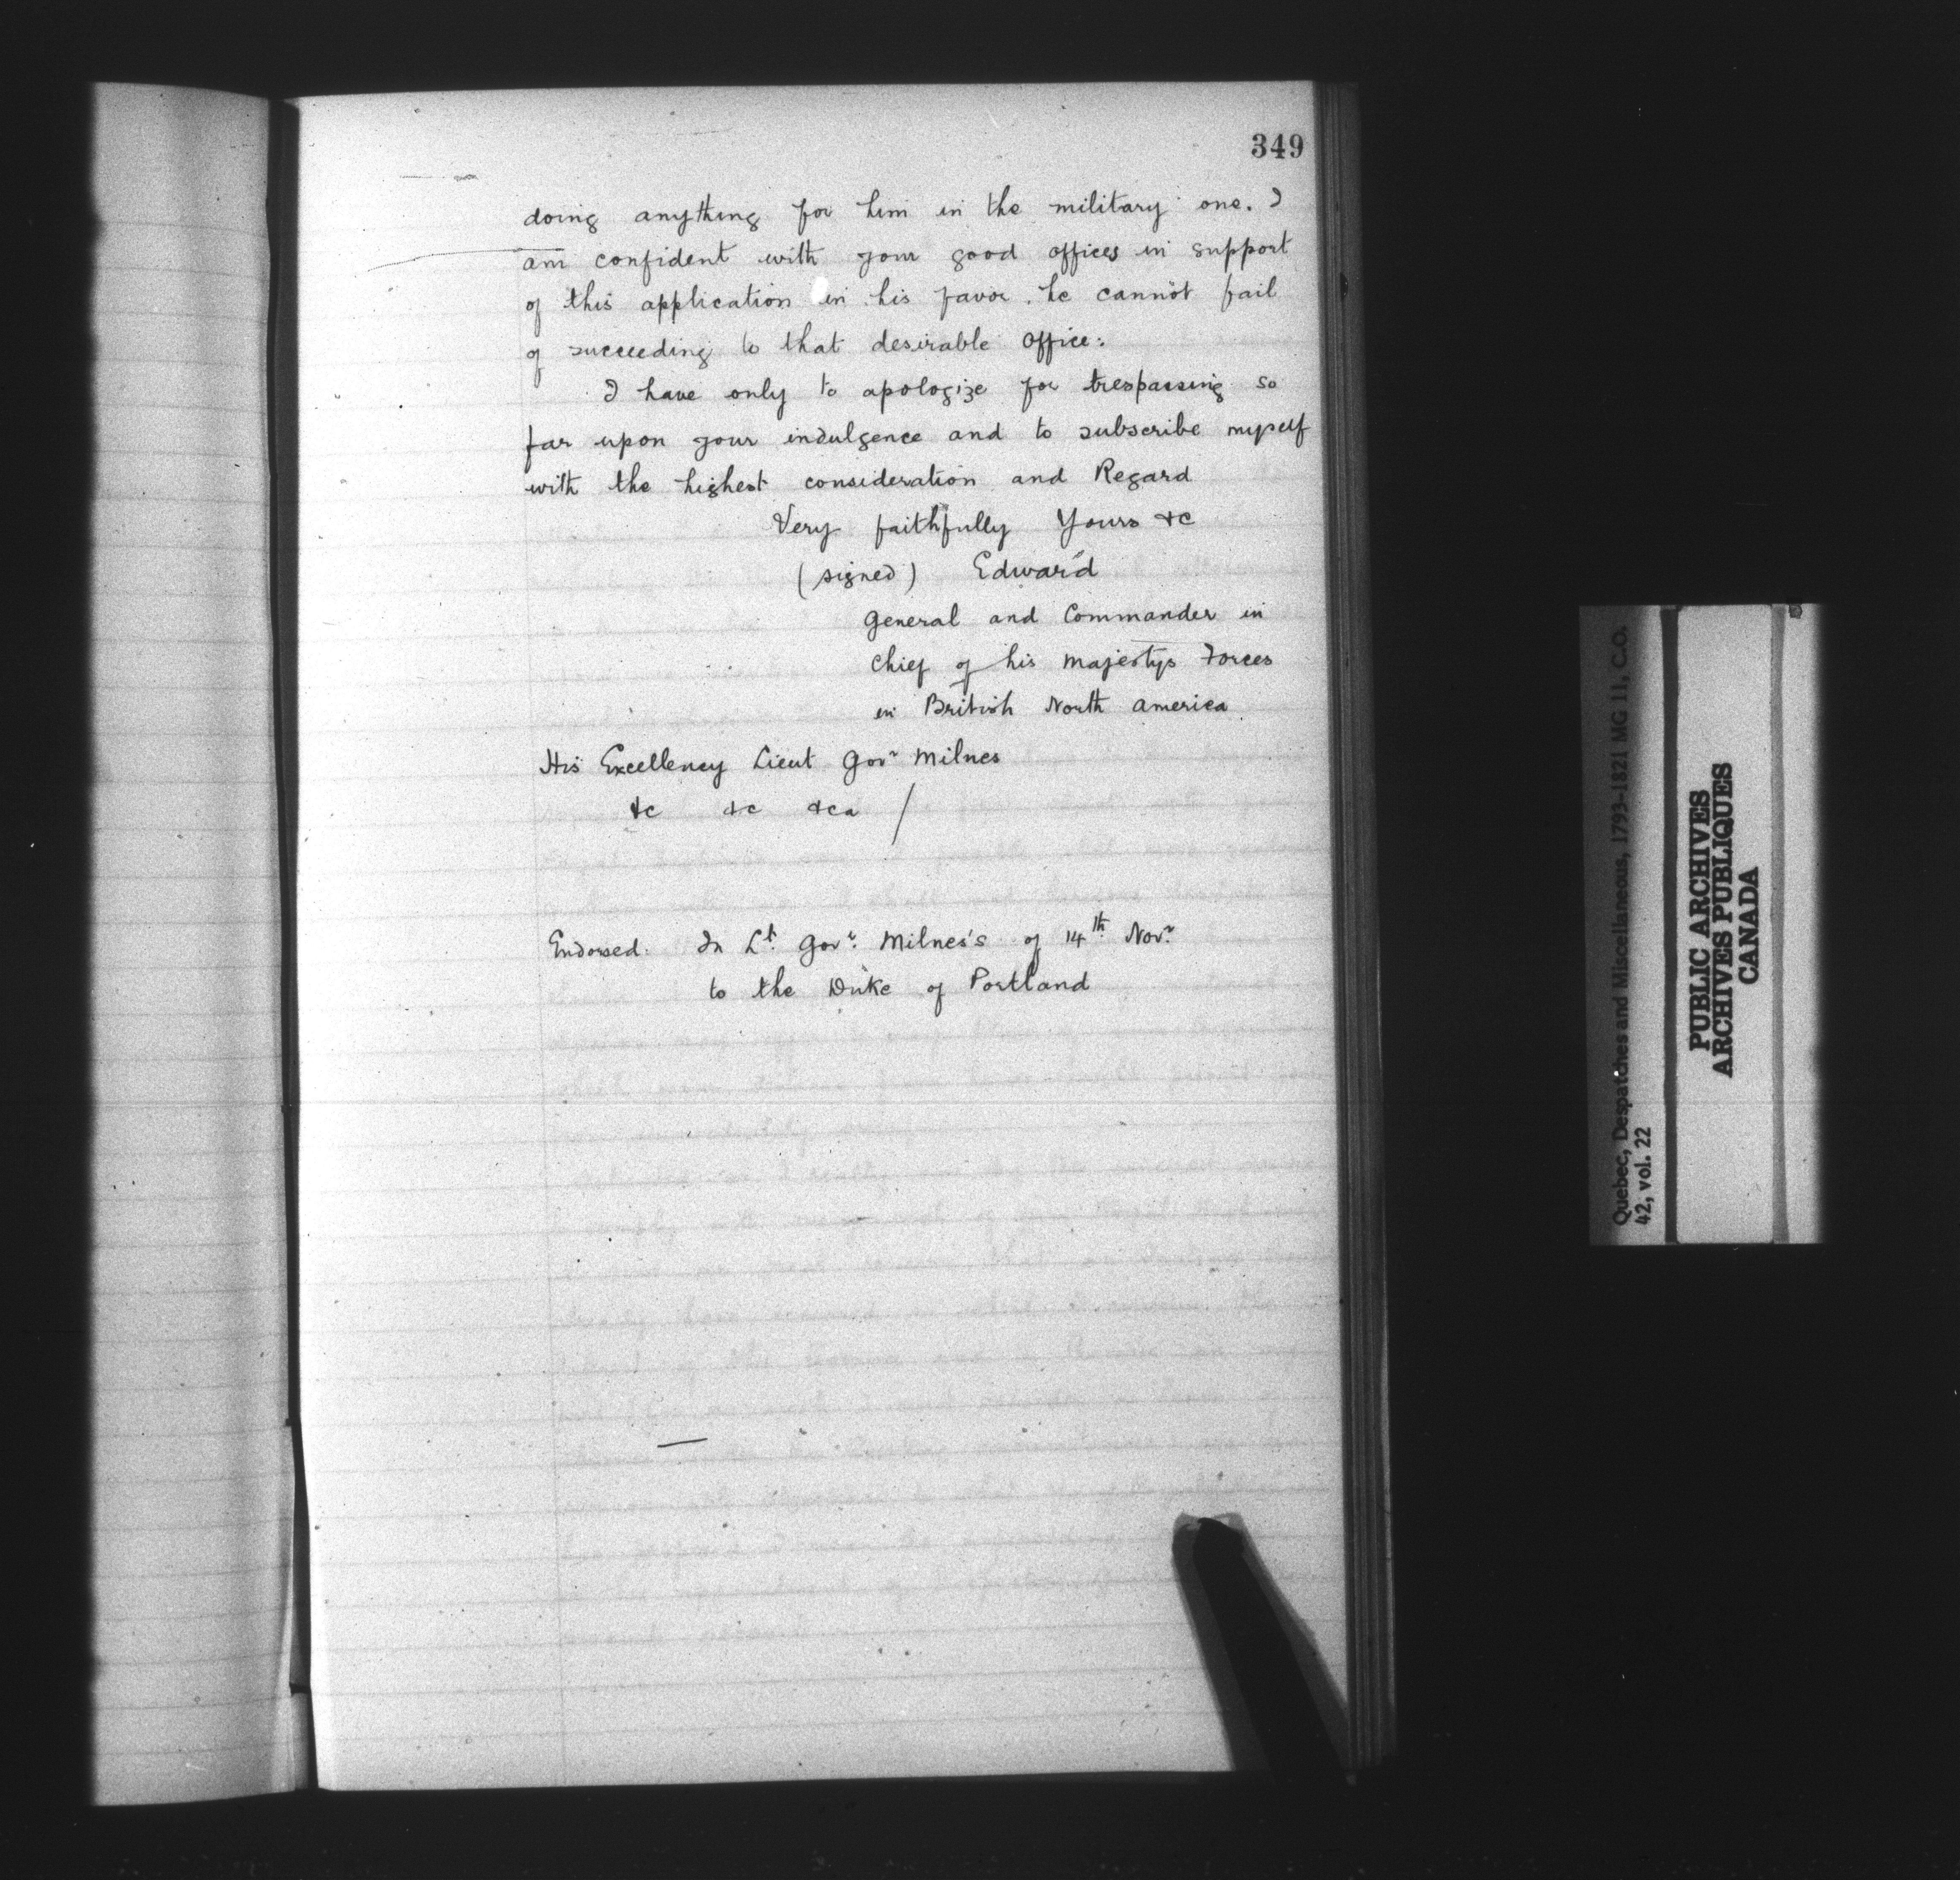 349
doing anything for him in the military one. I
am confident with your good offices in support
of this application in his favor. he cannot fail
of succeeding to that desirable office:
I have only to apologize for trespassing so
far upon your indulgence and to subscribe myself
with the highest consideration and Regard
Very faithfully Yours &c
(signed) Edward
General and Commander in
Chief of his Majestys Forces
in British North America
His Excellency Lieut Govr Milnes
&c &c &ca /
Endorsed. In Lt. Govr. Milnes's of 14th. Novr.
to the Duke of Portland
Quebec, Despatches and Miscellaneous, 1793-1821 MG 11, C.O.
42, vol. 22
PUBLIC ARCHIVES
ARCHIVES PUBLIQUES
CANADA